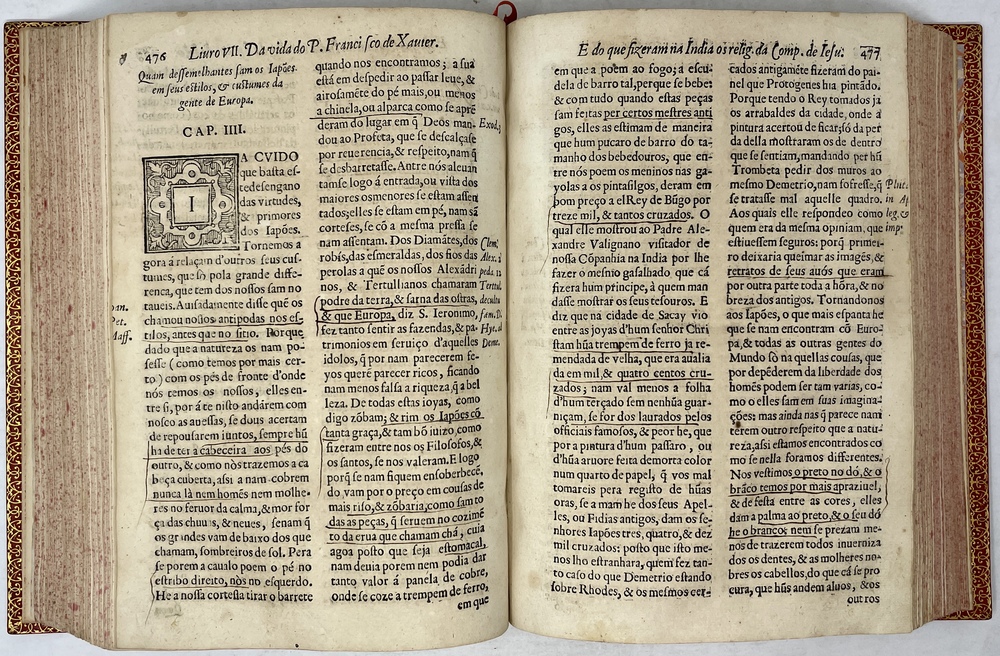 476 Liuro VII. Da vida do P. Francisco de Xauier.
Quam dessemelhantes sam os Iapões
em seus estilos, & custumes da
gente de Europa.
CAP. IIII.
I
A CVIDO
que basta es-
te desengano
das virtudes,
& primores
dos Iapões.
Tornemos a
gora á relaçam d'outros seus cus-
tumes, que só pola grande diffe-
rença, que tem dos nossos sam no
taueis. Auisadamente disse quẽ os
chamou nossos antipodas nos es-
tilos, antes que no sitio. Porque
dado que a natureza os nam po-
sesse (como temos por mais cer-
to) com os pés de fronte d'onde
nós temos os nossos, elles en-
tre si, por á te nisto andárem com
nosco ás auessas, se dous acertam
de repousarem iuntos, sempre hũ
ha de ter a cabeceira aos pés do
outro, & como nós trazemos a ca
beça cuberta, assi a nam cobrem
nunca lá nem homẽs nem molhe-
res no feruor da calma, & mor for
ça das chuuas, & neues, senam q̃
os grandes vam de baixo dos que
chamam, sombreiros de sol. Pera
se porem a caualo poem o pé no
estribo direito, nós no esquerdo.
He a nossa cortesia tirar o barrete
quando nos encontramos; a sua
está em despedir ao passar leue, &
airosamẽte do pé mais, ou menos
a chinela, ou alparca como se aprẽ
deram do lugar em q̃ Deos man-
dou ao Profeta, que se descalçasse
por reuerencia, & respeito, nam q̃
se desbarretasse. Antre nós aleuan
tamse logo á entrada, ou vista dos
maiores os menores se estam assen
tados; elles se estam em pé, nam sã
corteses, se cõ a mesma pressa se
nam assentam. Dos Diamãtes, dos
robís, das esmeraldas, dos fios das
perolas a quẽ os nossos Alexãdri
nos, & Tertullianos chamaram
podre da terra, & sarna das ostras,
& que Europa, diz S. Ieronimo,
fez tanto sentir as fazendas, & pa-
trimonios em seruiço d'aquelles
idolos, q̃ por nam parecerem fe-
yos querẽ parecer ricos, ficando
nam menos falsa a riqueza, q̃ a bel
leza. De todas estas ioyas, como
digo zõbam; & rim os Iapões cõ
tanta graça, & tam bõ iuizo, como
fizeram entre nos os Filosofos, &
os santos, se nos valeram. E logo
porq̃ se nam fiquem ensoberbecẽ-
do, vam por o preço em cousas de
mais riso, & zõbaria, como sam to
das as peças, q̃ seruem no cozimẽ
to da erua que chamam chá, cuia
agoa posto que seja estomacal,
nam deuia porem nem podia dar
tanto valor á panela de cobre,
onde se coze a trempem de ferro,
em que
Exod. 3
Clem.
Alex. i
peda. 12
Tertul.
de cultu
fœm. D.
Hye. ad
Deme.
Pet.
Maff.
E do que fizeram na India os relig. da Comp. de Iesu. 477
em que a poẽm ao fogo; á escu-
dela de barro tal, per que se bebe:
& com tudo quando estas peças
sam feitas per certos mestres anti
gos, elles as estimam de maneira
que hum pucaro de barro do ta-
manho dos bebedouros, que en-
tre nós poem os meninos nas ga-
yolas a os pintasilgos, deram em
bom preço a elRey de Bũgo por
treze mil, & tantos cruzados. O
qual elle mostrou ao Padre Ale-
xandre Valignano visitador de
nossa Cõpanhia na India por lhe
fazer o mesmo gasalhado que cá
fizera hum principe, á quem man
dasse mostrar os seus tesouros. E
diz que na cidade de Sacay vio
entre as joyas d'hum senhor Chri
stam hũa trempem de ferro ja re-
mendada de velha, que era aualia
da em mil, & quatro centos cru-
zados; nam val menos a folha
d'hum terçado sem nenhũa guar-
niçam, se for dos laurados pelos
officiais famosos, & peor he, que
por a pintura d'hum passaro, ou
d'hũa aruore feita de morta color
num quarto de papel, q̃ vos mal
tomareis pera registo de hũas
oras, se a mam he dos seus Apel-
les, ou Fidias antigos, dam os se-
nhores Iapões tres, quatro, & dez
mil cruzados: posto que isto me-
nos lho estranhara, quem fez tan-
to caso do que Demetrio estando
sobre Rhodes, & os mesmos cer-
cados antigamẽte fizeram do pai-
nel que Protógenes hia pintãdo.
Porque tendo o Rey tomados ja
os arrabaldes da cidade, onde á
pintura acertou de ficar, só da per
da della mostraram os de dentro
que se sentiam, mandando per hũ
Trombeta pedir dos muros ao
mesmo Demetrio, nam sofresse, q̃
se tratasse mal aquelle quadro.
Aos quais elle respondeo como
quem era da mesma opiniam, que
estiuessem seguros: porq̃ primei-
ro deixaria queimar as imagẽs, &
retratos de seus auós que eram
por outra parte toda a hõra, & no
breza dos antigos. Tornandonos
aos Iapões, o que mais espanta he
que se nam encontram cõ Euro-
pa, & todas as outras gentes do
Mundo só na quellas cousas, que
por depẽderem da liberdade dos
homẽs podem ser tam varias, co-
mo o elles sam em suas imagina-
ções: mas ainda nas q̃ parece nam
terem outro respeito que a natu-
reza, assi estamos encontrados co
mo se nella foramos differentes.
Nos vestimos o preto no dó, & o
brãco temos por mais apraziuel,
& de festa entre as cores, elles
dam a palma ao preto, & o seu dó
he o branco; nem se prezam me-
nos de trazerem todos inuerniza
dos os dentes, & as molheres no-
bres os cabellos, do que cá se pro
cura, que hũs andem aluos, & os
outros
Plut.
in Ap
leg. &
imp.